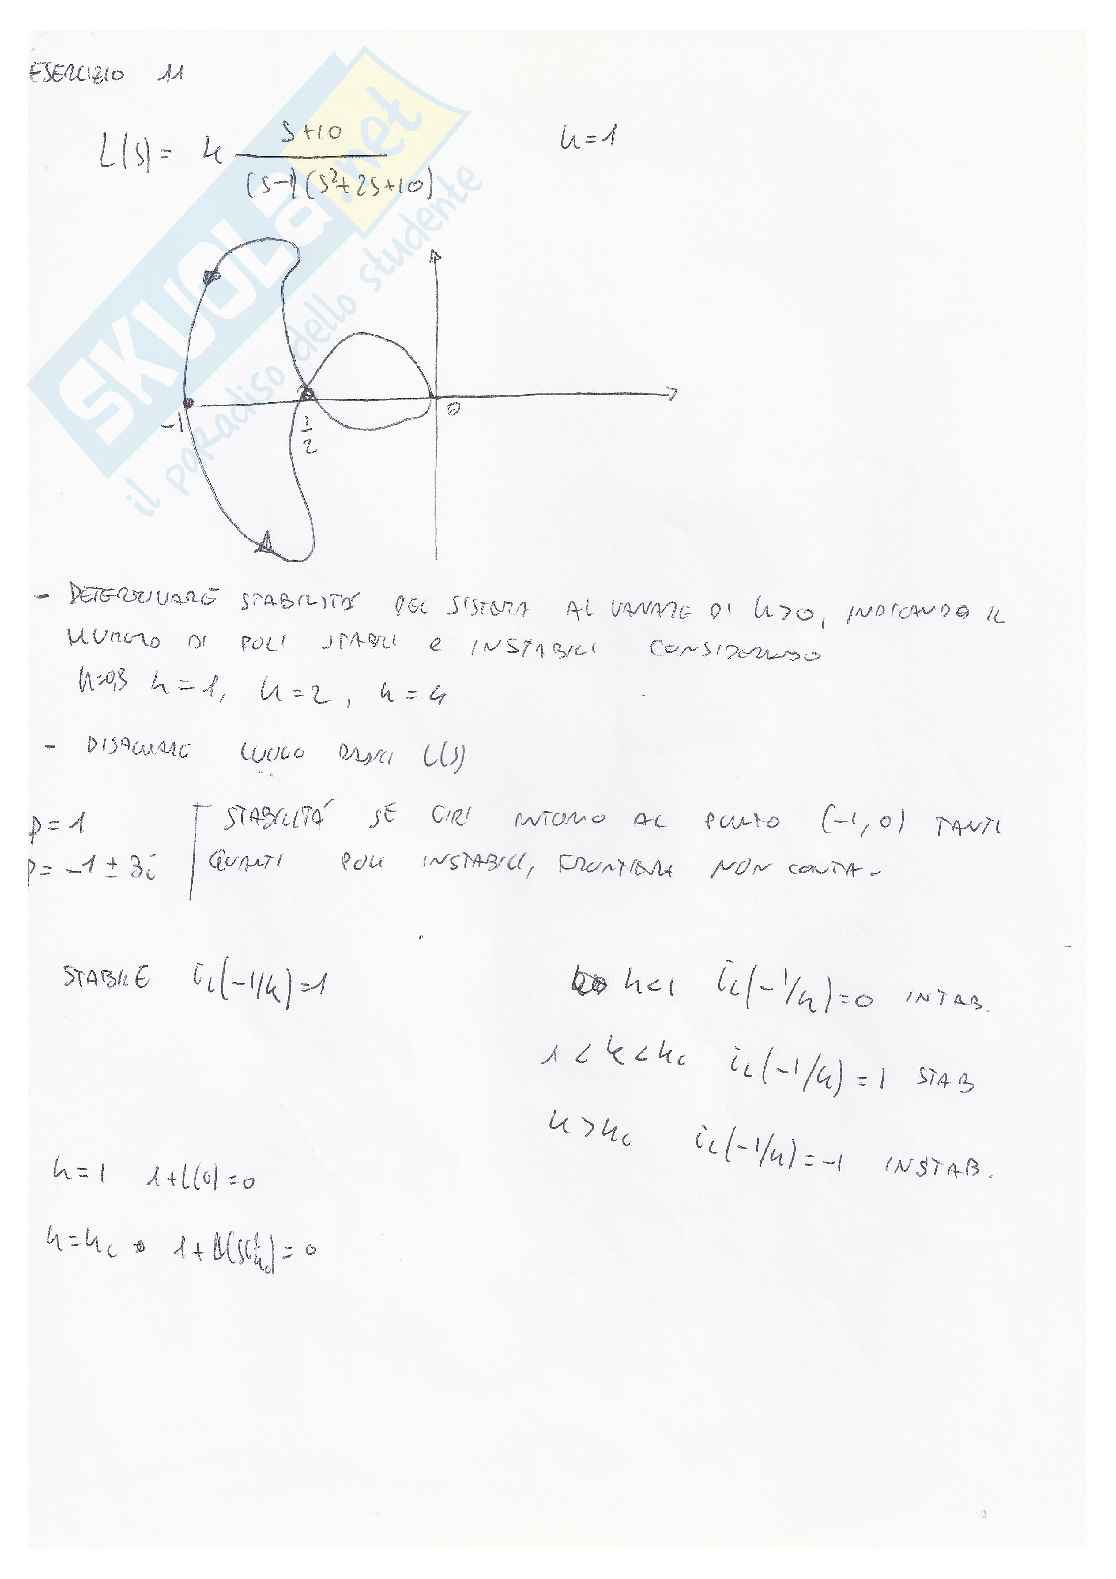 ESERCIZIO 11
L(s) = k (s+10) / ((s-1)(s²+2s+10))    k=1
-1
1/2
0
- DETERMINARE STABILITÀ DEL SISTEMA AL VARIARE DI k>0, INDICANDO IL
NUMERO DI POLI STABILI E INSTABILI CONSIDERANDO
k=0,3 k=1, k=2, k=4
- DISEGNARE LUOGO RADICI L(s)
p=1
p=-1±3i
STABILITÀ SE GIRI INTORNO AL PUNTO (-1,0) TANTI
QUANTI POLI INSTABILI, FRONTIERA NON CONTA-
STABILE iL(-1/k)=1
k<1 iL(-1/k)=0 INTAB.
1<k<kc iL(-1/k)=1 STAB
k>kc iL(-1/k)=-1 INSTAB.
k=1 1+L(0)=0
k=kc 1+ =0
SKUOLA.net
il paradiso dello studente